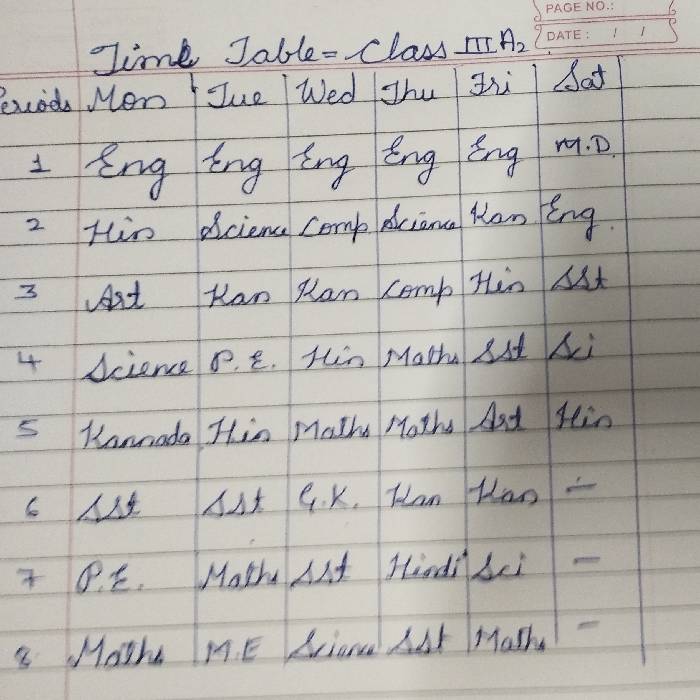 PAGE NO.:
DATE: / /
Time Table = Class III A2
Periods Mon Tue Wed Thu Fri Sat
1 Eng Eng Eng Eng Eng M.D.
2 Hin Science Comp Science Kan Eng.
3 Art Kan Kan Comp Hin SSt
4 Science P.E. Hin Maths SSt Sci
5 Kannada Hin Maths Maths Art Hin
6 SSt SSt G.K. Kan Kan -
7 P.E. Maths SSt Hindi Sci -
8 Maths M.E Science SSt Maths -